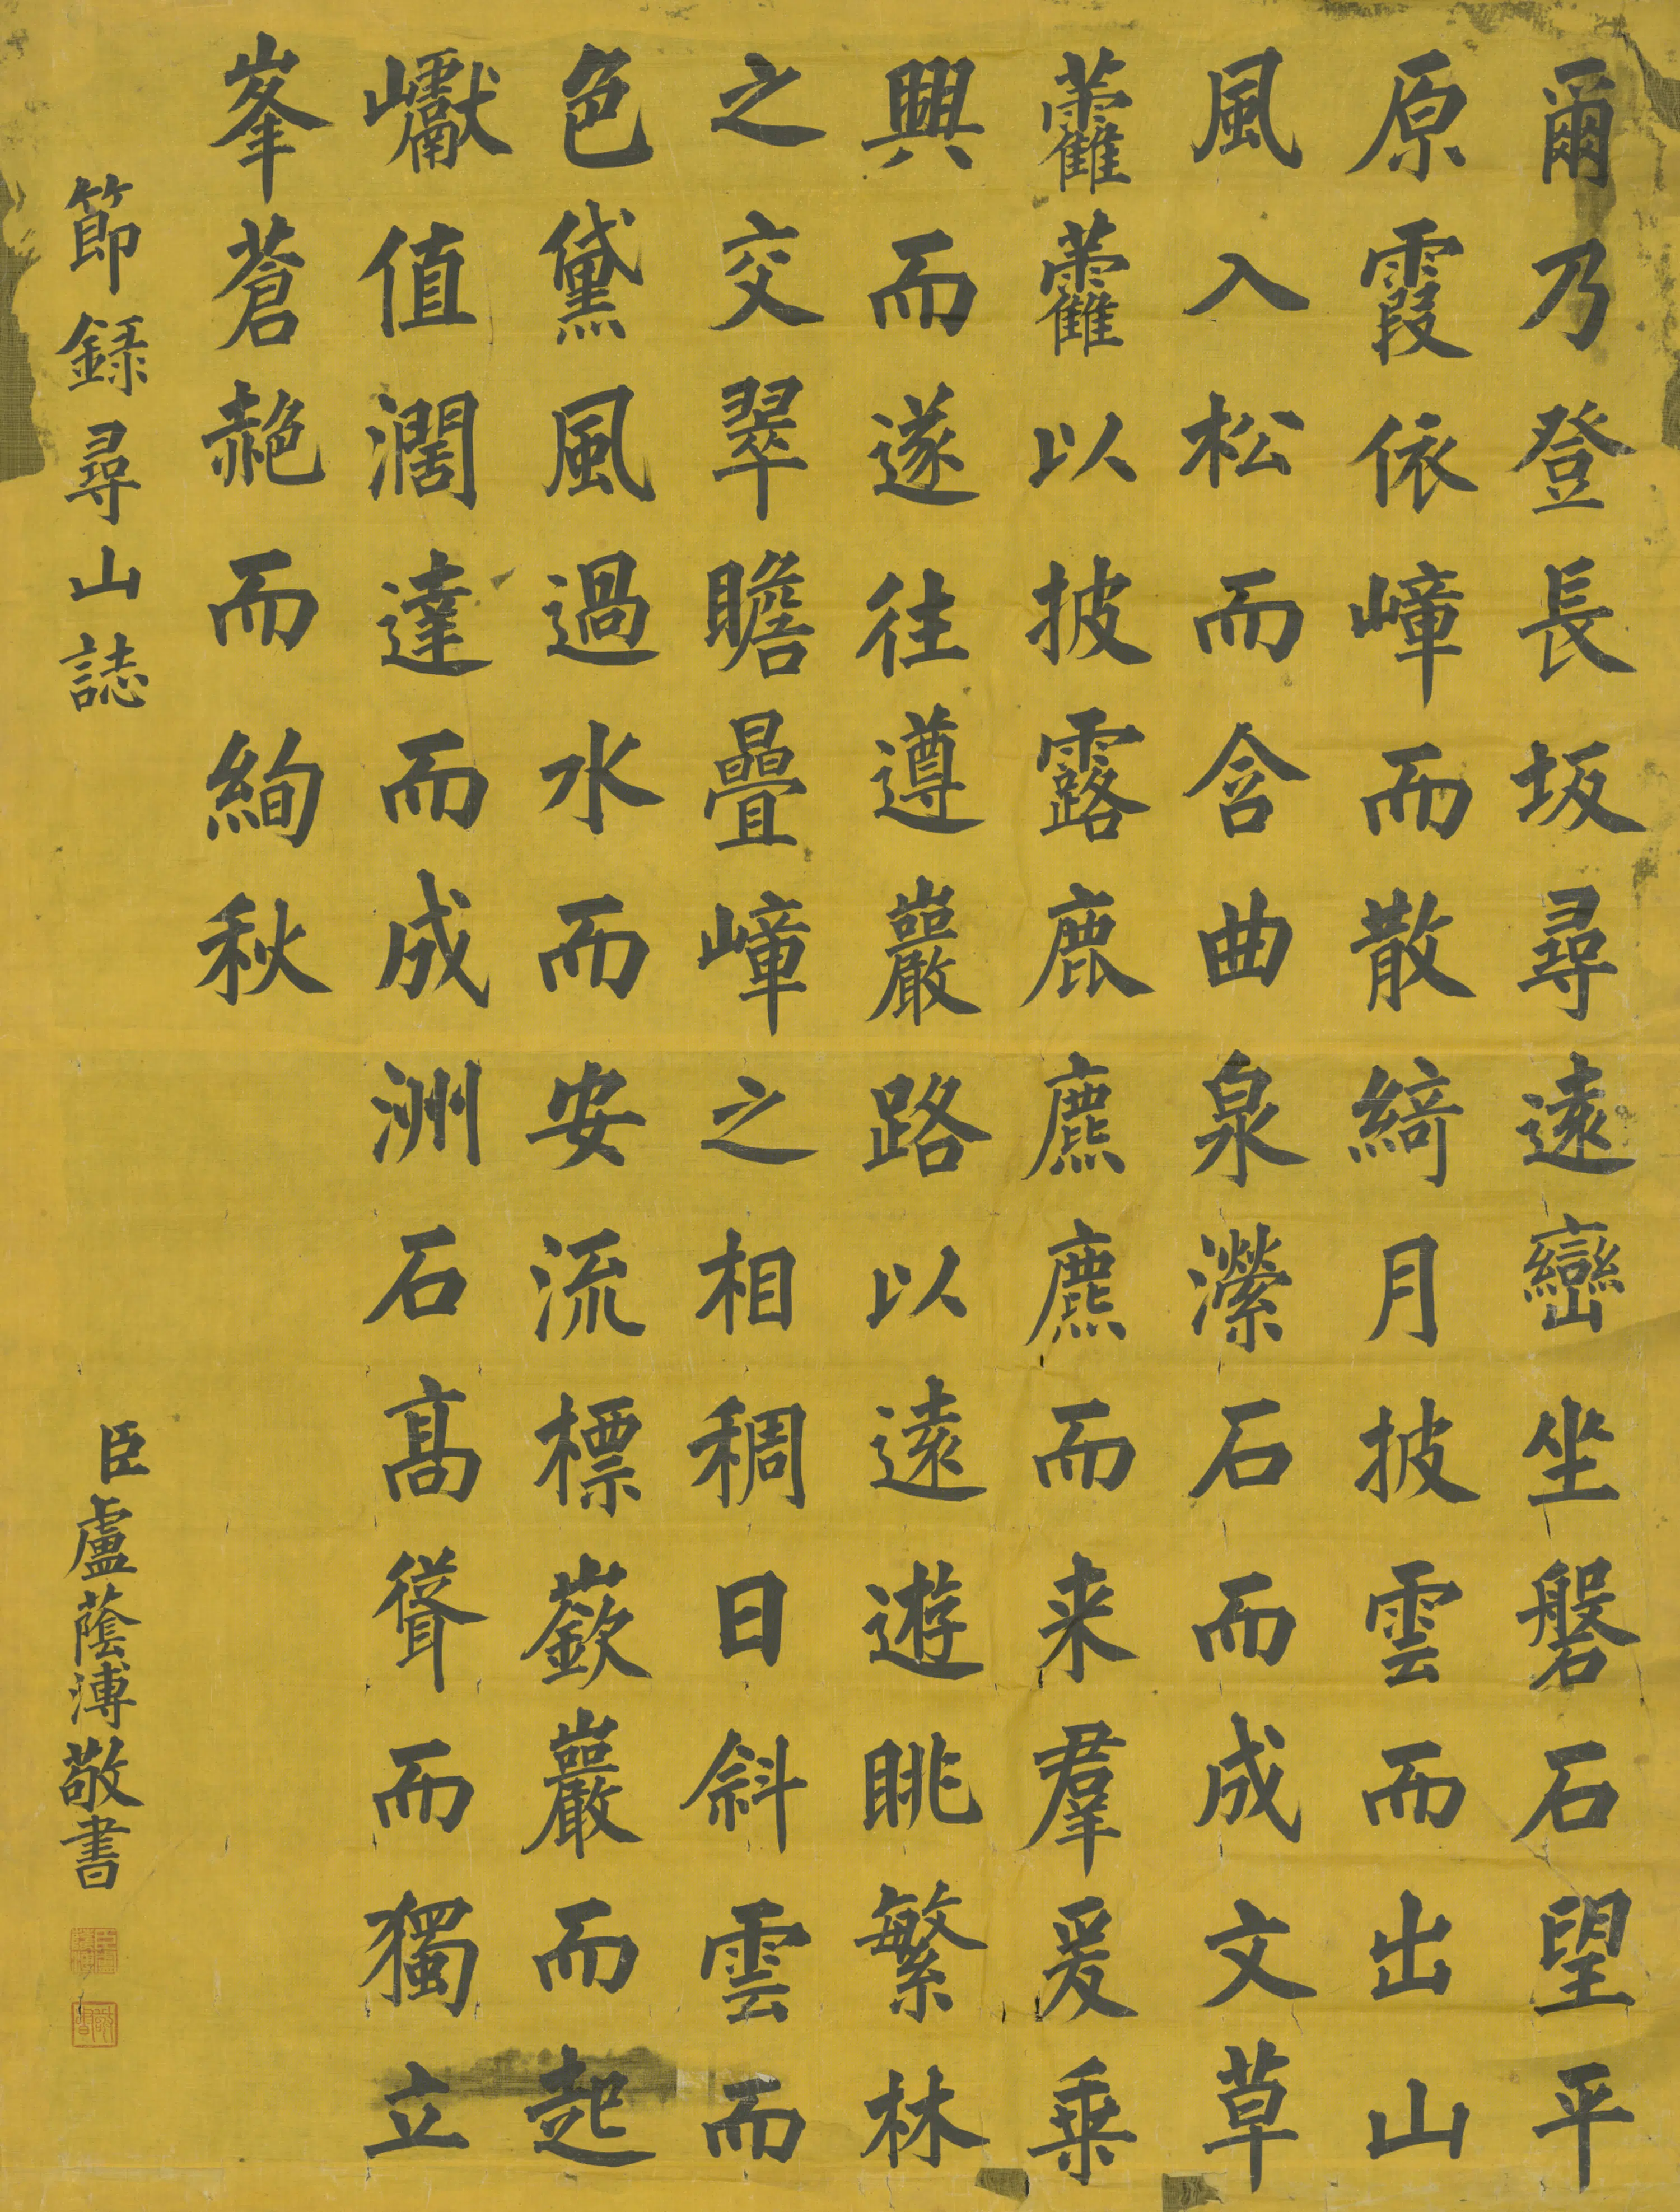 爾乃登長坂尋遠巒坐磐石望平
原霞依嶂而散綺月披雲而出山
風入松而含曲泉瀠石而成文草
藿藿以披露鹿麃麃而来羣爰乗
興而遂往遵巖路以遠遊眺繁林
之交翠瞻疊嶂之相稠日斜雲而
色黛風過水而安流標嶔巖而起
巘值濶達而成洲石髙聳而獨立
峯蒼赩而絢秋
節録尋山誌
臣盧蔭溥敬書